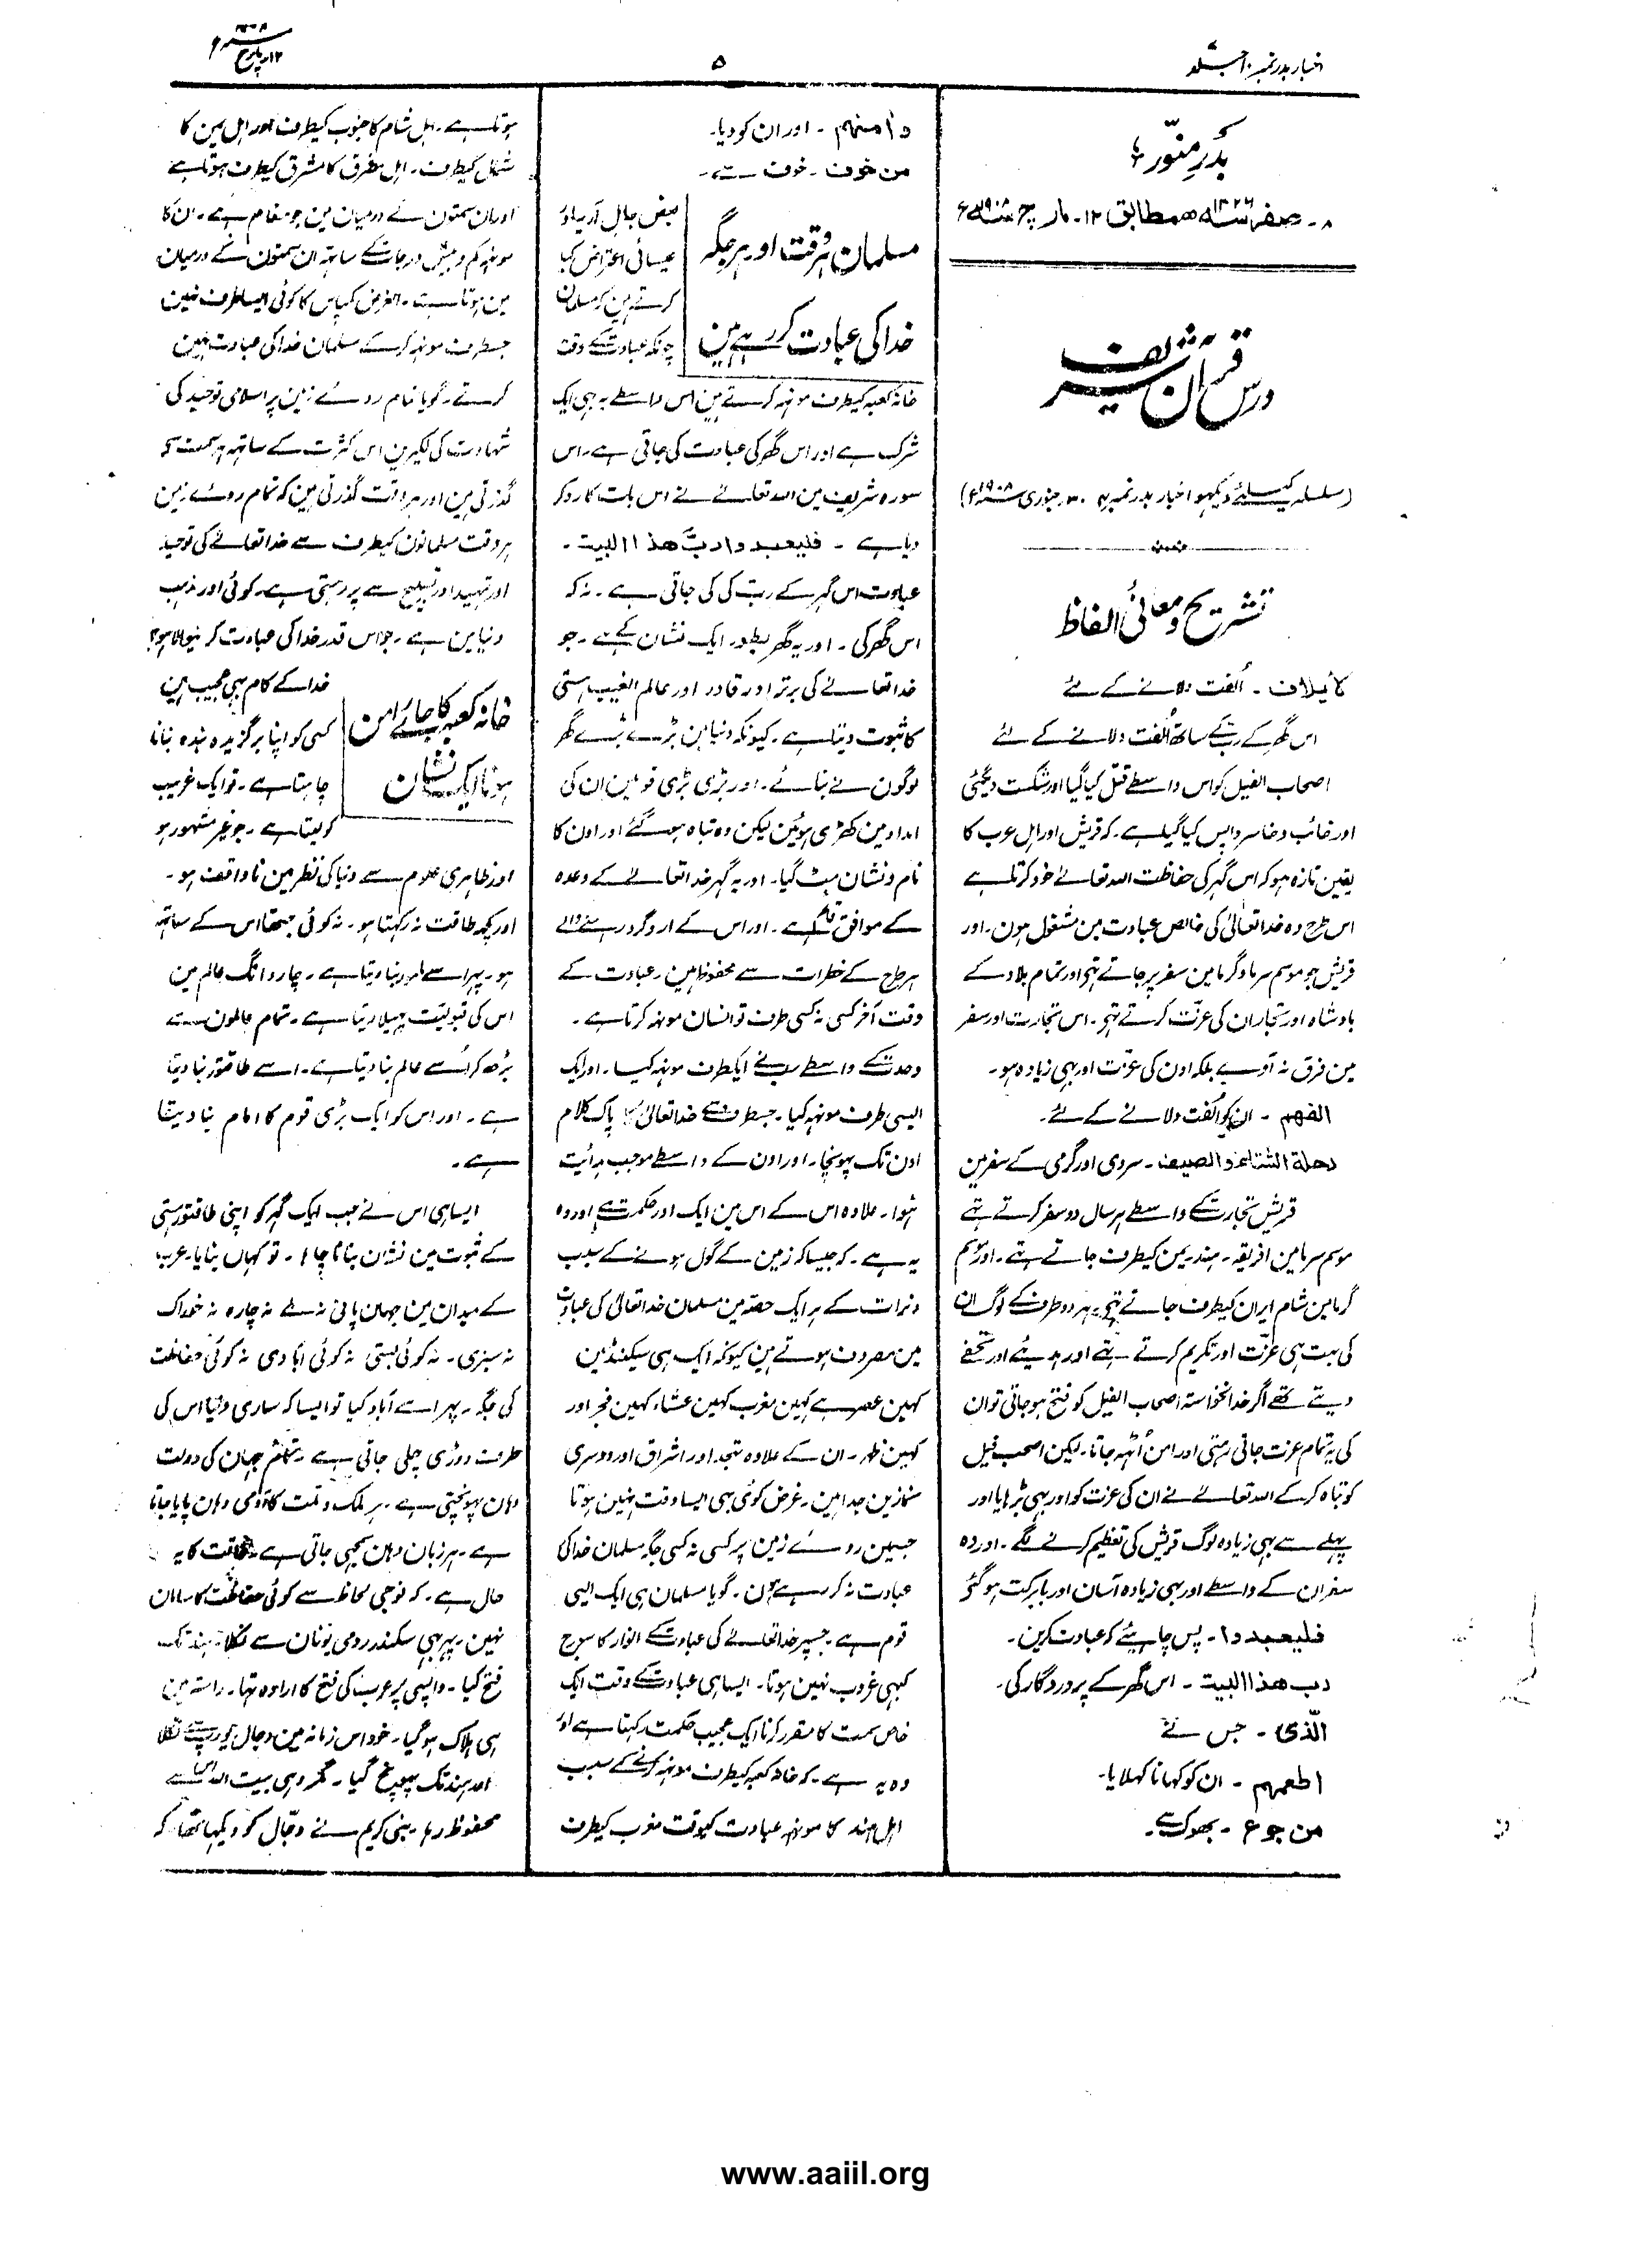 اخبار بدر نمبر ۱۰ جلد
۵
۱۲ مارچ ۱۹۰۸ء
بدر منوّر
۸۔ صفر ۱۳۲۶ ھ مطابق ۱۲۔ مارچ ۱۹۰۸ء
درس قرآن شریف
(سلسلہ کیلئے دیکھو اخبار بدر نمبر ۴ ۳۰ جنوری ۱۹۰۸ء)
تشریح و معانی الفاظ
لایلاف ۔ اُلفت دلانے کے لئے
اس گھر کے رب کے ساتھ اُلفت دلانے کے لئے
اصحاب الفیل کو اس واسطے قتل کیا گیا اور شکست دیگئی
اور خائب و خاسر واپس کیا گیا ہے۔ کہ قریش اور اہل عرب کا
یقین تازہ ہو کر اس گہر کی حفاظت اللہ تعالےٰ خود کرتا ہے
اس طرح وہ خدا تعالیٰ کی خالص عبادت مین مشغول ہون۔ اور
قریش جو موسم سرما و گرما مین سفر پر جاتے تہے اور تمام بلاد کے
بادشاہ اور تجار ان کی عزّت کرتے تہے۔ اس تجارت اور سفر
مین فرق نہ آوے بلکہ اون کی عزّت اور بہی زیادہ ہو۔
الفہم ۔ ان کو اُلفت دلانے کے لئے۔
رحلۃ الشتاء و الصیف ۔ سردی اور گرمی کے سفر مین
قریش تجارت کے واسطے ہر سال دو سفر کرتے تہے
موسم سرما مین افریقہ۔ ہند۔ یمن کیطرف جاتے تہے۔ اور موسم
گرما مین شام ایران کیطرف جاتے تہے۔ ہر دو طرف کے لوگ ان
کی بہت ہی عزّت اور تکریم کرتے تہے اور ہدیئے اور تحفے
دیتے تھے اگر خدانخواستہ اصحاب الفیل کو فتح ہو جاتی تو ان
کی یہ تمام عزت جاتی رہتی اور امن اُٹہہ جاتا۔ لیکن اصحب فیل
کو تباہ کر کے اللہ تعالےٰ نے ان کی عزت کو اور بہی بڑہایا اور
پہلے سے بہی زیادہ لوگ قریش کی تعظیم کرنے لگے۔ اور وہ
سفر ان کے واسطے اور بہی زیادہ آسان اور بابرکت ہو گئے
فلیعبدوا ۔ پس چاہئیے کہ عبادت کرین۔
رب ھذا البیت ۔ اس گھر کے پروردگار کی۔
الّذی ۔ جس نے
اطعمہم ۔ ان کو کہانا کہلایا۔
من جوع ۔ بھوک سے۔
وٰامنہم ۔ اور ان کو دیا۔
من خوف ۔ خوف سے۔
مسلمان ہر وقت اور ہر جگہ
خدا کی عبادت کر رہے ہین
بعض جاہل آریہ اور
عیسائی اعتراض کیا
کرتے ہین کہ مسلمان
چونکہ عبادت کے وقت
خانہ کعبہ کیطرف مونہہ کرتے ہین اس واسطے یہ بہی ایک
شرک ہے اور اس گھر کی عبادت کی جاتی ہے۔ اس
سورہ شریف مین اللہ تعالےٰ نے اس بات کا رد کر
دیا ہے ۔ فلیعبدوا ربّ ھذا البیت ۔
عبادت اس گہر کے رب کی کی جاتی ہے ۔ نہ کہ
اس گھر کی ۔ اور یہ گھر بطور ایک نشان کے ہے ۔ جو
خدا تعالےٰ کی برتر اور قادر اور عالم الغیب ہستی
کا ثبوت دیتا ہے۔ کیونکہ دنیا مین بڑے بڑے گھر
لوگون نے بنائے۔ اور بڑی بڑی قومین ان کی
امداد مین کھڑی ہوئین لیکن وہ تباہ ہو گئے اور اون کا
نام و نشان مٹ گیا۔ اور یہ گہر خدا تعالےٰ کے وعدہ
کے موافق قائم ہے ۔ اور اس کے ارد گرد رہنے والے
ہر طرح کے خطرات سے محفوظ ہین۔ عبادت کے
وقت آخر کسی نہ کسی طرف تو انسان مونہہ کرتا ہے۔
وحدت کے واسطے سب نے ایکطرف مونہہ کیا۔ اور ایک
ایسی طرف مونہہ کیا۔ جسطرف سے خدا تعالیٰ کا پاک کلام
اون تک پہونچا۔ اور اون کے واسطے موجب ہدایت
ہُوا۔ علاوہ اس کے اس مین ایک اور حکمت ہے اور وہ
یہ ہے۔ کہ جیسا کہ زمین کے گول ہونے کے سبب
دن رات کے ہر ایک حصّہ مین مسلمان خدا تعالیٰ کی عبادت
مین مصروف ہوتے ہین کیونکہ ایک ہی سیکنڈ مین
کہین عصر ہے کہین مغرب کہین عشاء کہین فجر اور
کہین ظہر۔ ان کے علاوہ تہجد اور اشراق اور دوسری
نمازین جدا ہین۔ غرض کوئی بہی ایسا وقت نہین ہوتا
جسمین روئے زمین پر کسی نہ کسی جگہ مسلمان خدا کی
عبادت نہ کر رہے ہون۔ گویا مسلمان ہی ایک ایسی
قوم ہے۔ جسپر خدا تعالےٰ کی عبادت کے انوار کا سورج
کبہی غروب نہین ہوتا۔ ایسا ہی عبادت کے وقت ایک
خاص سمت کا مقرر کرنا ایک عجیب حکمت رکہتا ہے اور
وہ یہ ہے۔ کہ خانہ کعبہ کیطرف مونہہ کرنے کے سبب
اہل ہند کا مونہہ عبادت کیوقت مغرب کیطرف
ہوتا ہے۔ اہل شام کا جنوب کیطرف اور اہل یمن کا
شمال کیطرف۔ اہل مغرب کا مشرق کیطرف ہوتا ہے
اور ان سمتون کے درمیان مین جو مقام ہے۔ ان کا
مونہہ کم و بیش درجات کے ساتہہ ان سمتون کے درمیان
مین ہوتا ہے۔ الغرض کمپاس کا کوئی ایسا طرف نہین
جسطرف مونہہ کر کے مسلمان خدا کی عبادت نہین
کرتے۔ گویا تمام روئے زمین پر اسلامی توحید کی
شہادت کی لکیرین اس کثرت کے ساتہہ ہر سمت سے
گذرتی ہین اور ہر وقت گذرتی ہین کہ تمام روئے زمین
ہر وقت مسلمانون کیطرف سے خدا تعالےٰ کی توحید
اور تمہید اور تسبیح سے پر رہتی ہے۔ کوئی اور مذہب
دنیا مین ہے۔ جو اس قدر خدا کی عبادت کرنیوالا ہو؟
خانہ کعبہ کا جائے امن
ہونا ایک نشان
خدا کے کام بہی عجیب ہین
کسی کو اپنا برگزیدہ بندہ بنانا
چاہتا ہے۔ تو ایک غریب
کو لیتا ہے۔ جو غیر مشہور ہو
اور ظاہری علوم سے دنیا کی نظر مین ناواقف ہو۔
اور کچہہ طاقت نہ رکہتا ہو۔ نہ کوئی جتھا اس کے ساتہہ
ہو۔ پہر اسے نامور بنا دیتا ہے۔ چار دانگ عالم مین
اس کی قبولیت پہیلا دیتا ہے۔ تمام عالمون سے
بڑھ کر اُسے عالم بنا دیتا ہے۔ اسے طاقتور بنا دیتا
ہے۔ اور اس کو ایک بڑی قوم کا امام بنا دیتا
ہے۔
ایسا ہی اس نے جب ایک گہر کو اپنی طاقتور ہستی
کے ثبوت مین نشان بنانا چاہا۔ تو کہاں بنایا۔ عرب
کے میدان مین جہان پانی نہ ملے نہ چارہ نہ خوراک
نہ سبزی۔ نہ کوئی بستی نہ کوئی آبادی نہ کوئی حفاظت
کی جگہ۔ پہر اسے آباد کیا تو ایسا کہ ساری دنیا اس کی
طرف دوڑی چلی جاتی ہے۔ تمام جہان کی دولت
وہان پہونچتی ہے۔ ہر ملک و ملت کا آدمی وہان پایا جاتا
ہے۔ ہر زبان وہان سمجہی جاتی ہے۔ حفاظت کا یہ
حال ہے۔ کہ فوجی لحاظ سے کوئی حفاظت کا سامان
نہین۔ پہر بہی سکندر رومی یونان سے نکلا۔ ہند تک
فتح کیا۔ واپسی پر عرب کی فتح کا ارادہ تہا۔ راستہ مین
ہی ہلاک ہو گیا۔ خود اس زمانہ مین دجال یورپ سے نکلا
اور ہند تک پہونچ گیا۔ مگر وہی بیت اللہ اس سے
محفوظ رہا۔ نبی کریم نے دجّال کو دیکہا تھا کہ
www.aaiil.org